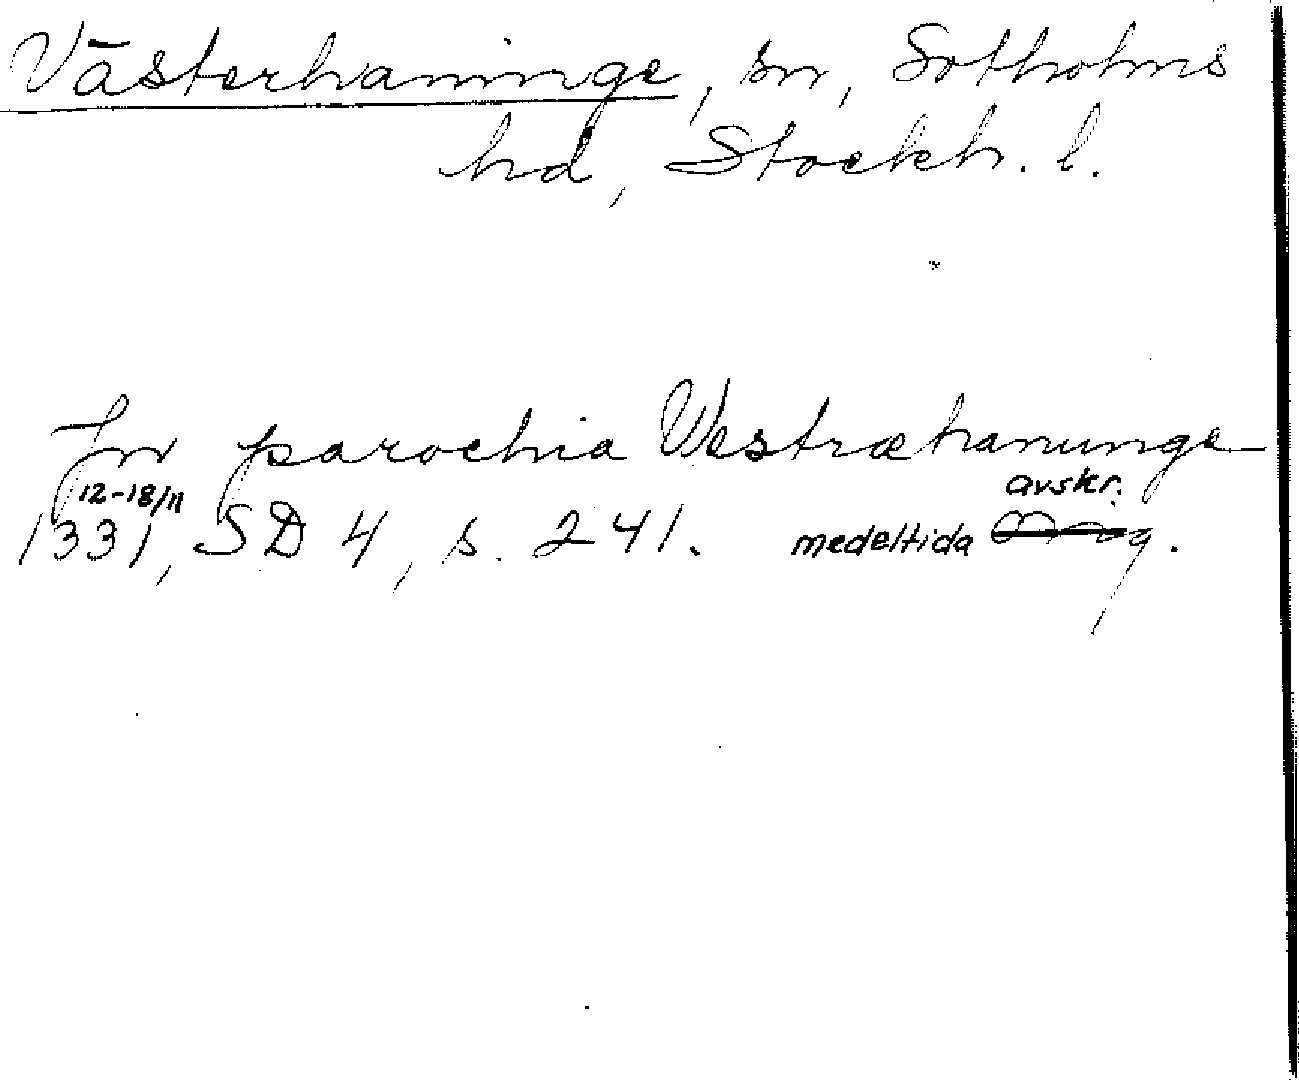 Västerhaninge, sn, Sotholms
hd, Stockh. l.
In parochia Westræhanunge
12-18/11 avskr.
1331, SD 4, s. 241. medeltida